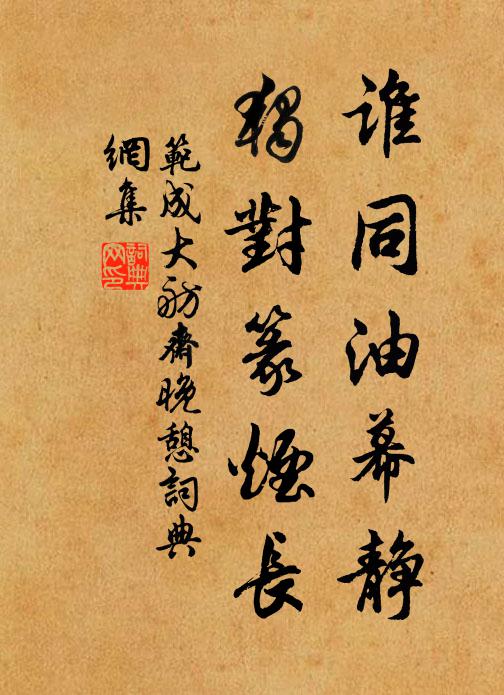 谁同油幕静
獨對篆煙長
範成大舫齋晚憩詞典
網集
詞典
网印